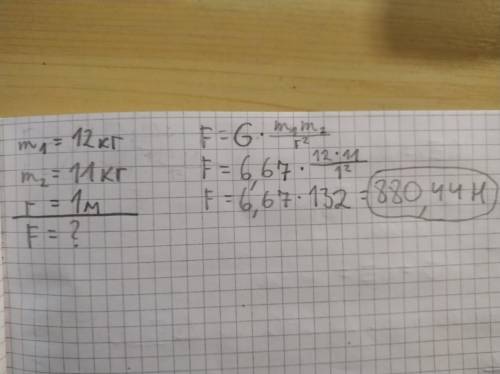 m₁ = 12кг
m₂ = 11кг
r = 1м
F = ?
F = G · m₁m₂/r²
F = 6,67 · 12·11/1²
F = 6,67 · 132 = 880,44Н